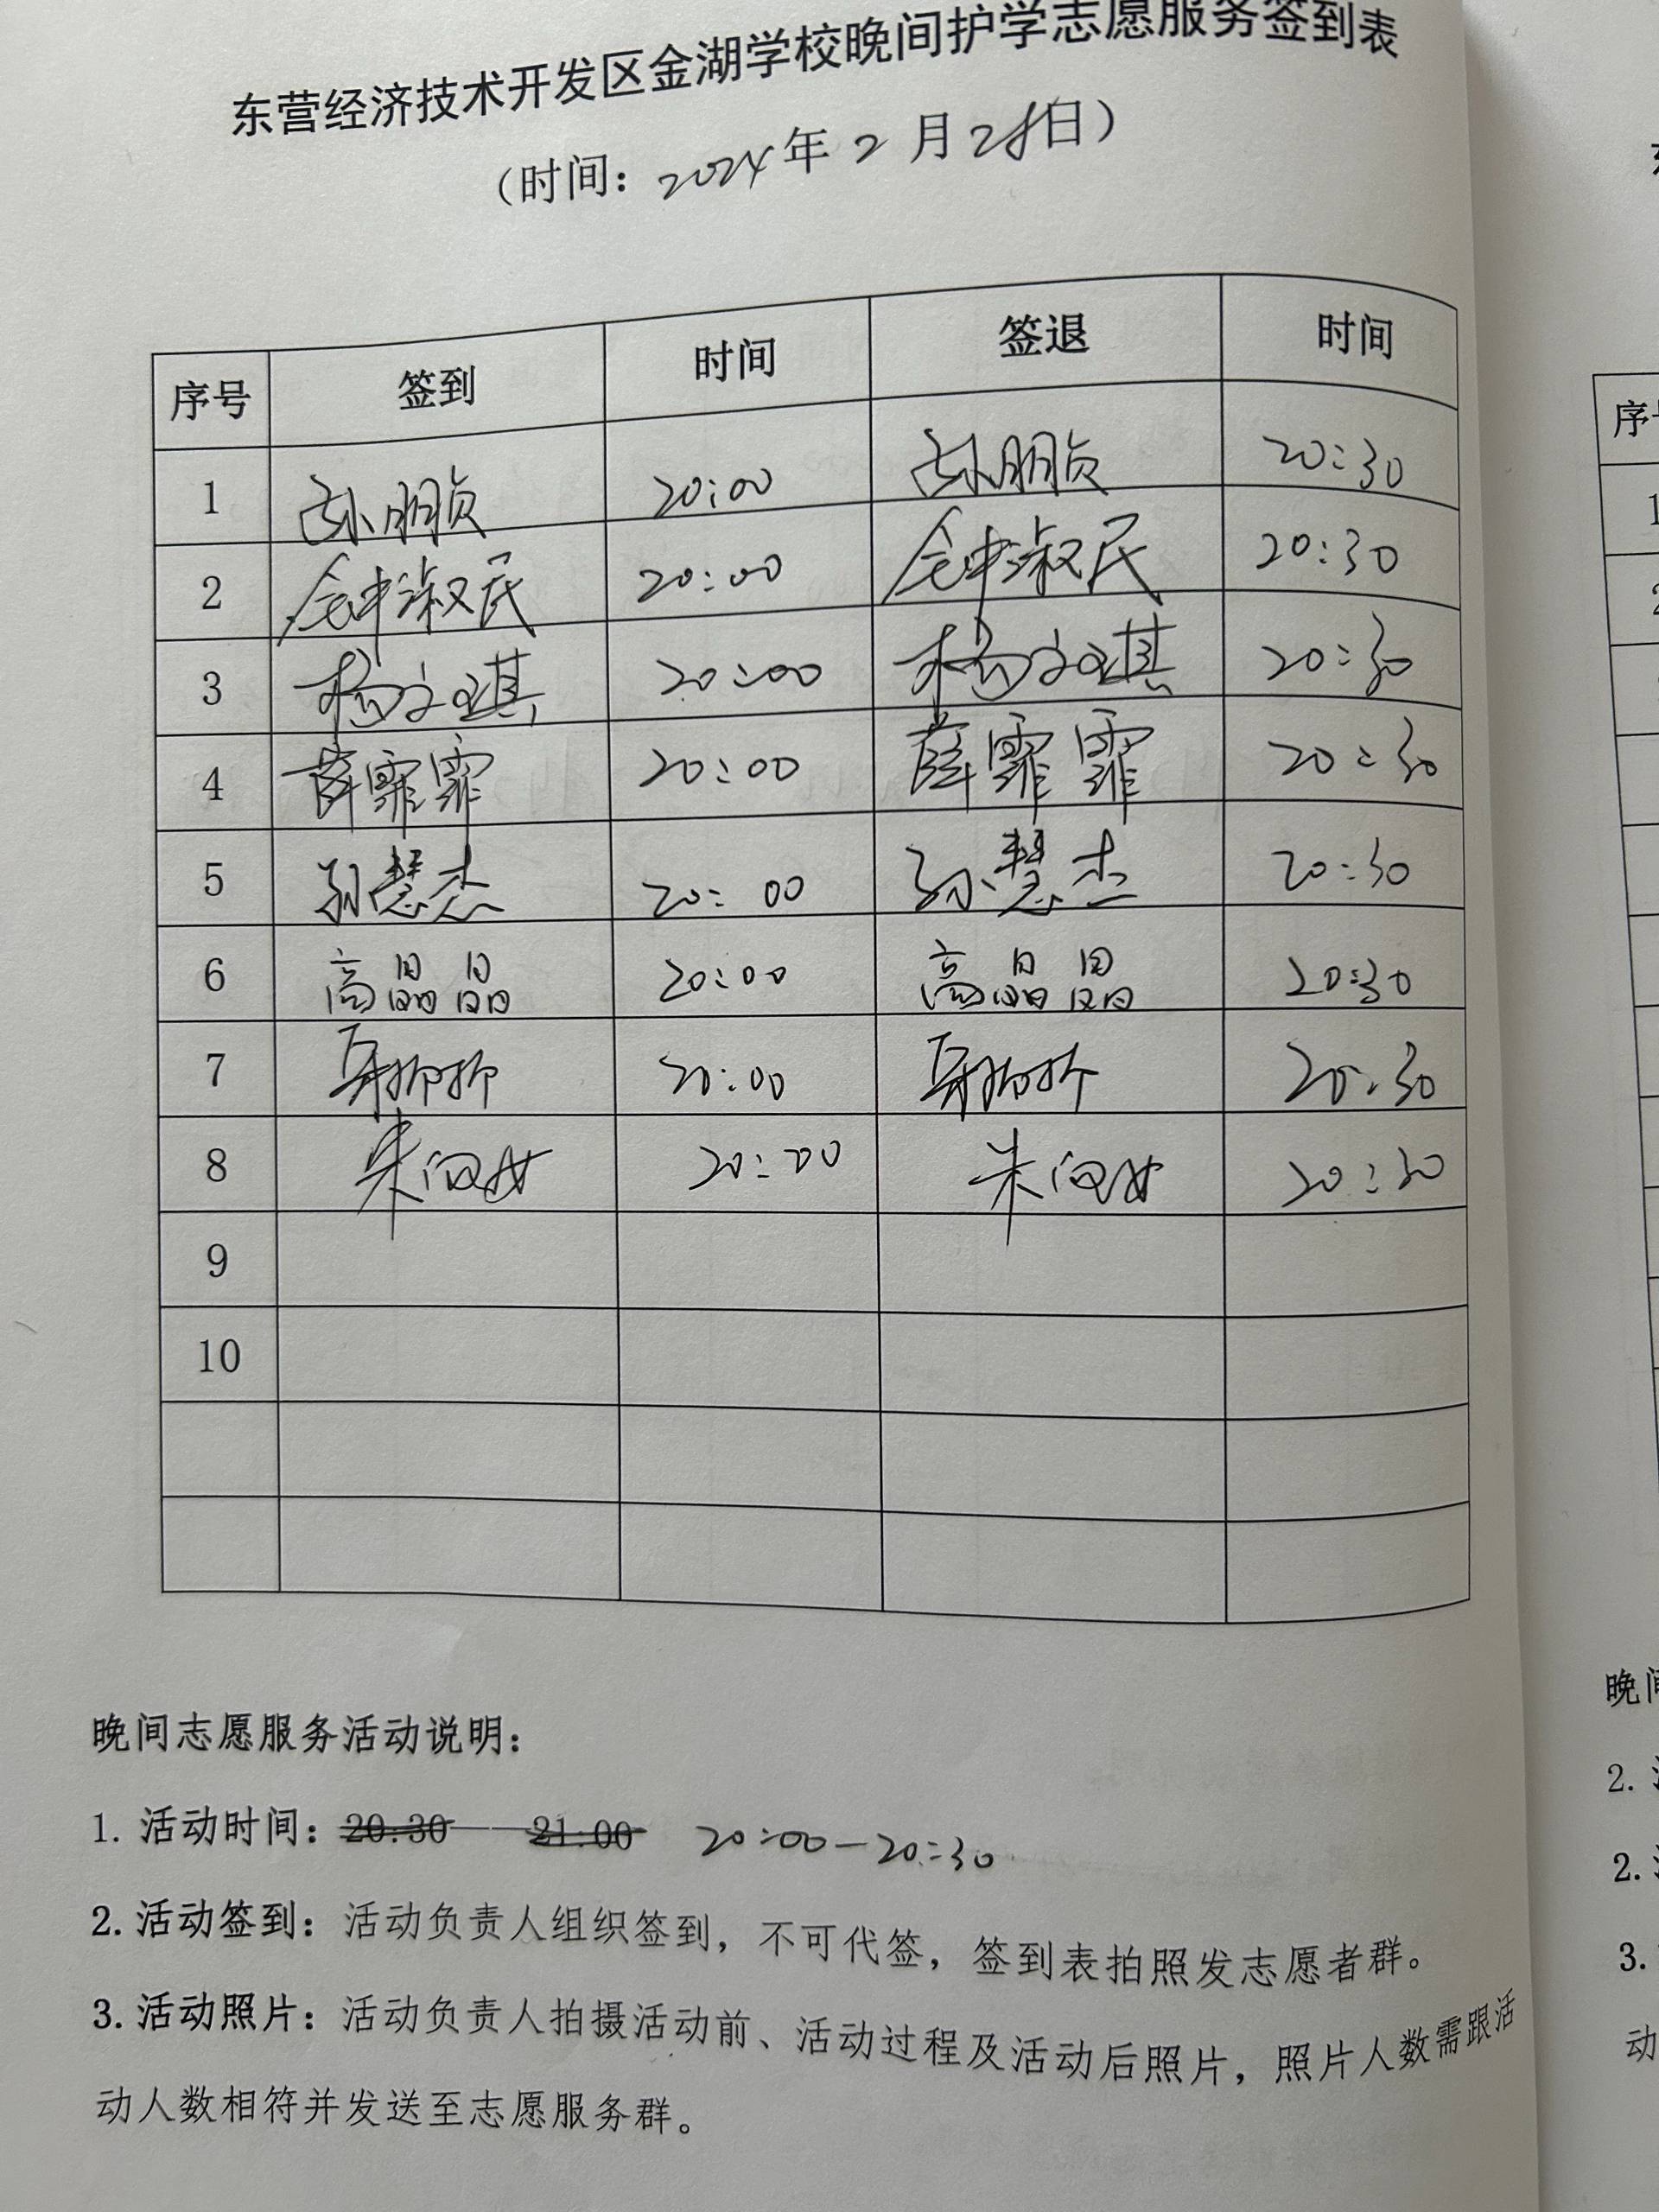 东营经济技术开发区金湖学校晚间护学志愿服务签到表
（时间：2024年2月28日）
序号 签到 时间 签退 时间
1 孙朋贞 20:00 孙朋贞 20:30
2 钟淑民 20:00 钟淑民 20:30
3 杨文琪 20:00 杨文琪 20:30
4 薛霏霏 20:00 薛霏霏 20:30
5 孙慧杰 20:00 孙慧杰 20:30
6 高晶晶 20:00 高晶晶 20:30
7 20:00 20:30
8 20:00 20:30
9
10
晚间志愿服务活动说明：
1. 活动时间：20:30——21:00 20:00-20:30
2. 活动签到：活动负责人组织签到，不可代签，签到表拍照发志愿者群。
3. 活动照片：活动负责人拍摄活动前、活动过程及活动后照片，照片人数需跟活
动人数相符并发送至志愿服务群。